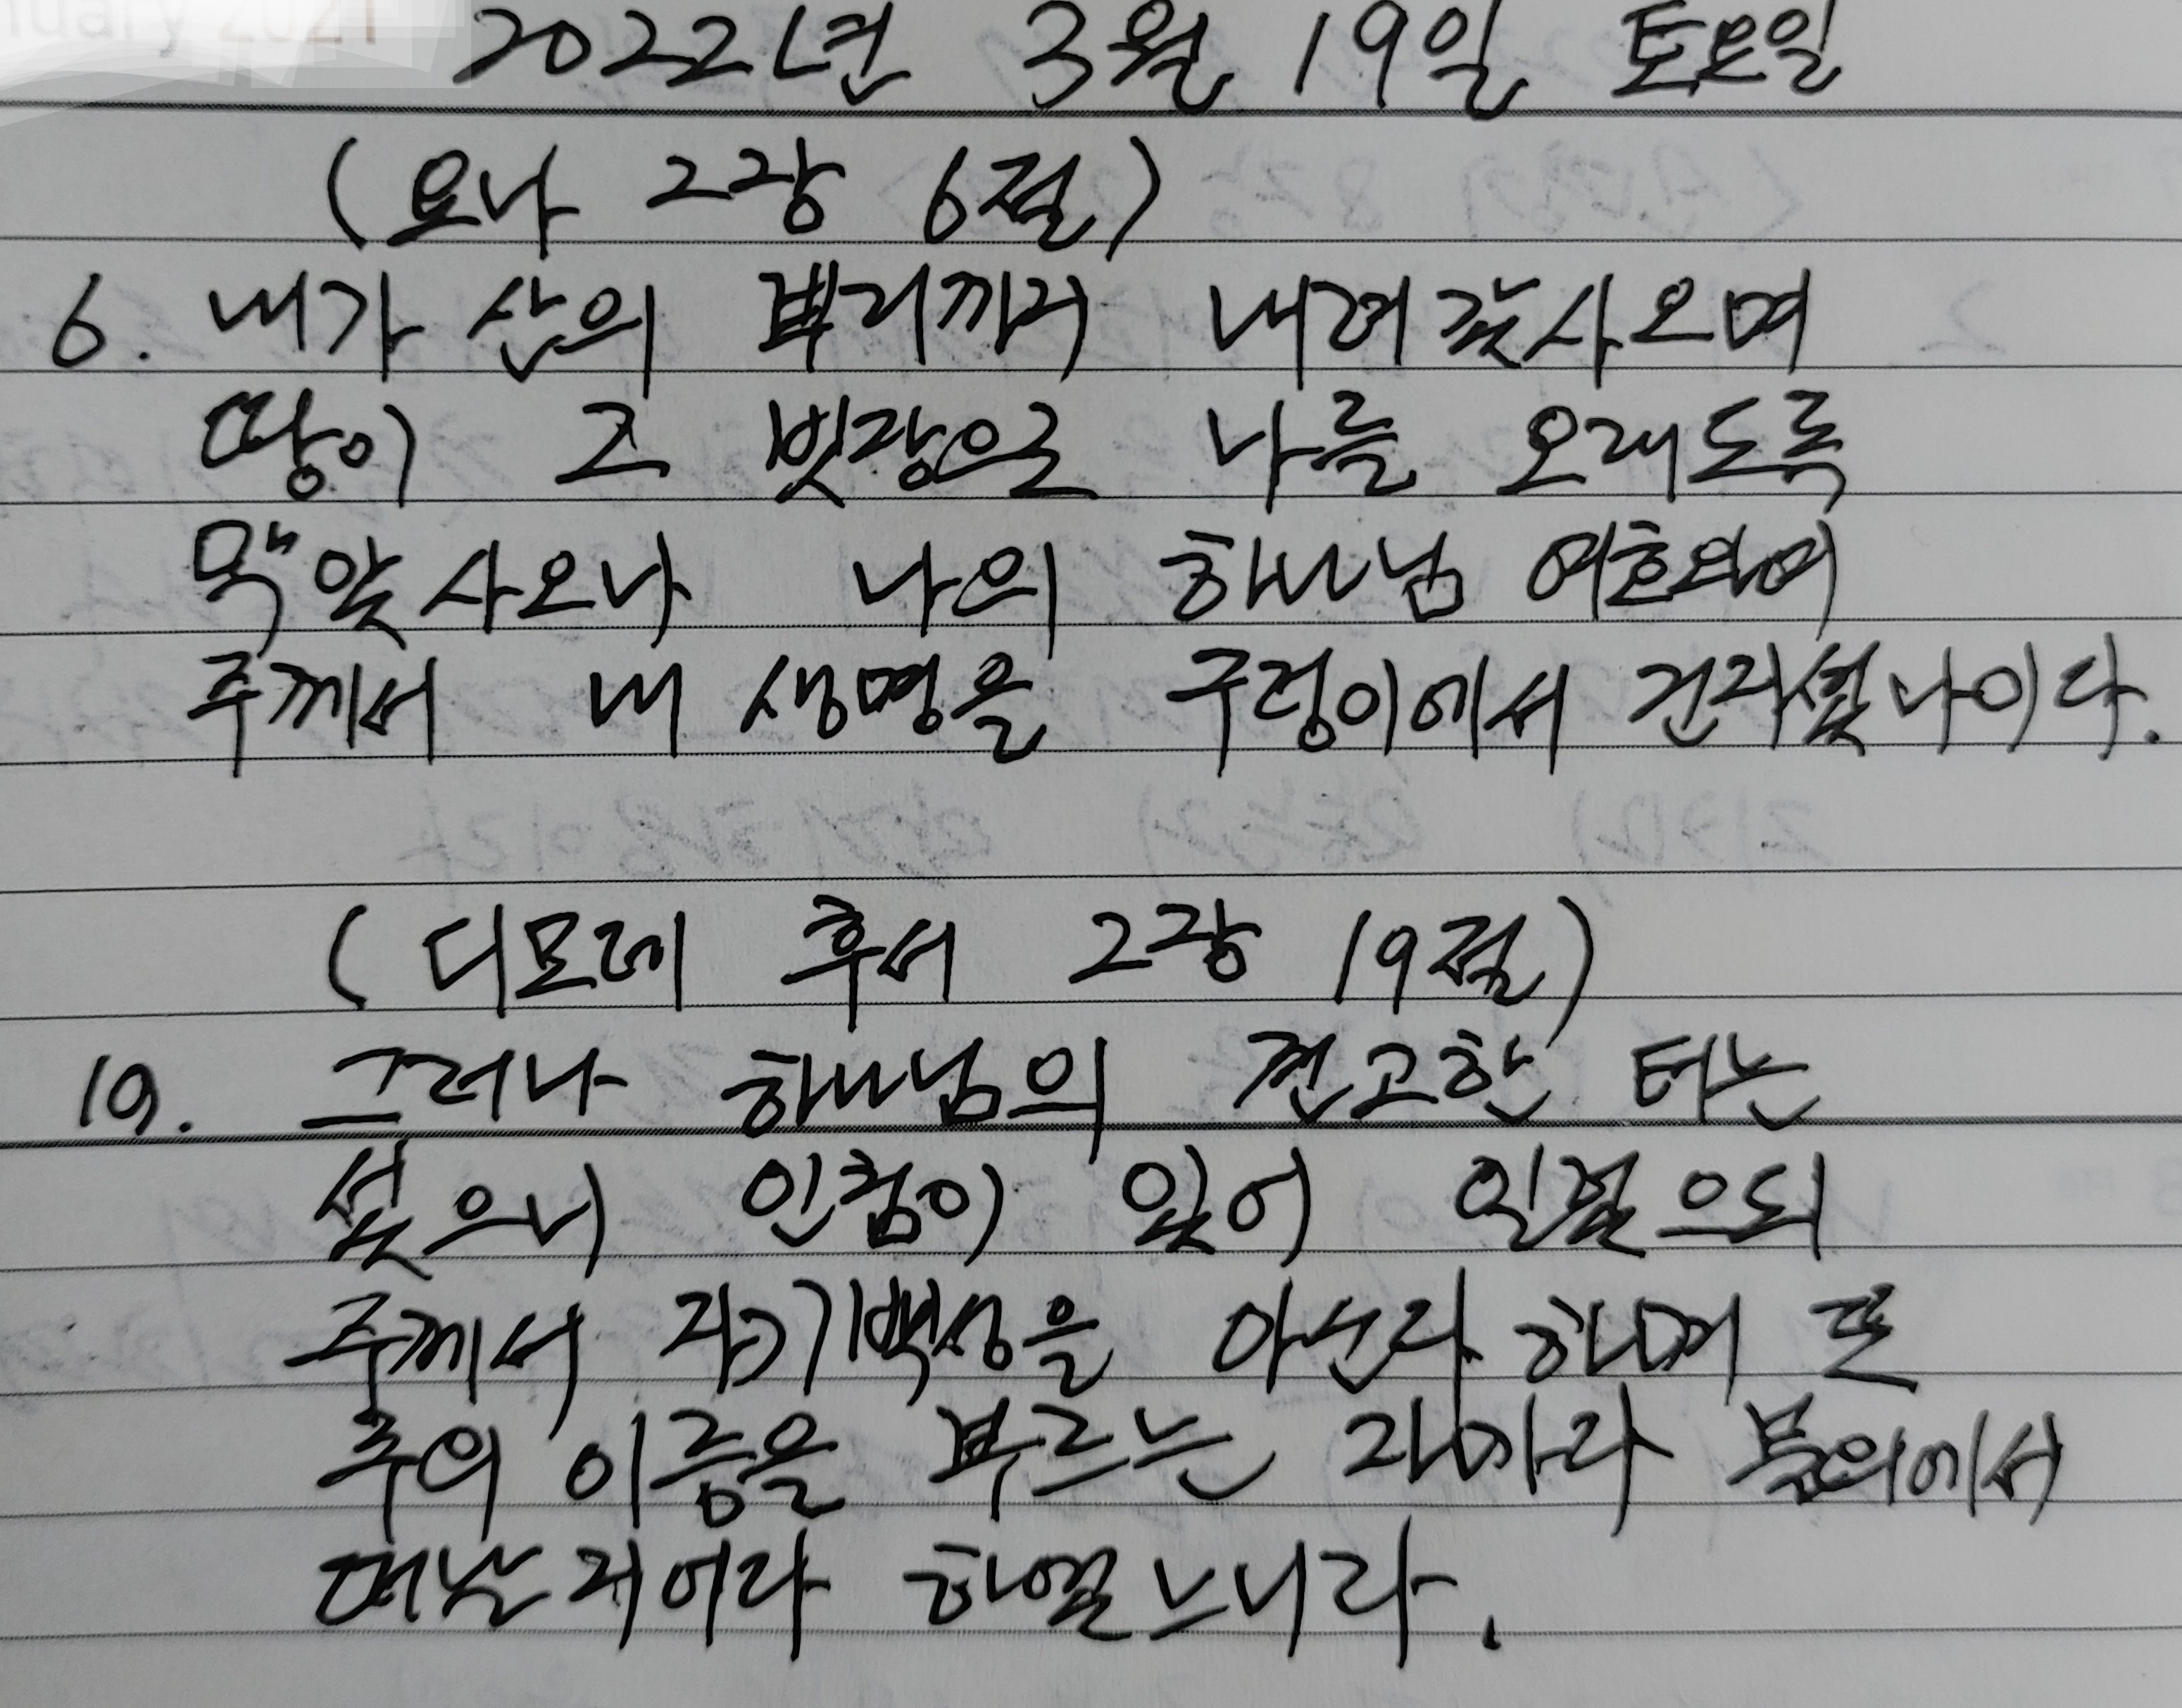 nuary 2021
2022년 3월 19일 토요일
(요나 2장 6절)
6. 내가 산의 뿌리까지 내려갔사오며
땅이 그 빗장으로 나를 오래도록
막았사오나 나의 하나님 여호와여
주께서 내 생명을 구렁이에서 건지셨나이다.
(디모데 후서 2장 19절)
19. 그러나 하나님의 견고한 터는
섰으니 인침이 있어 일렀으되
주께서 자기백성을 아신다 하며 또
주의 이름을 부르는 자마다 불의에서
떠날지어다 하였느니라.